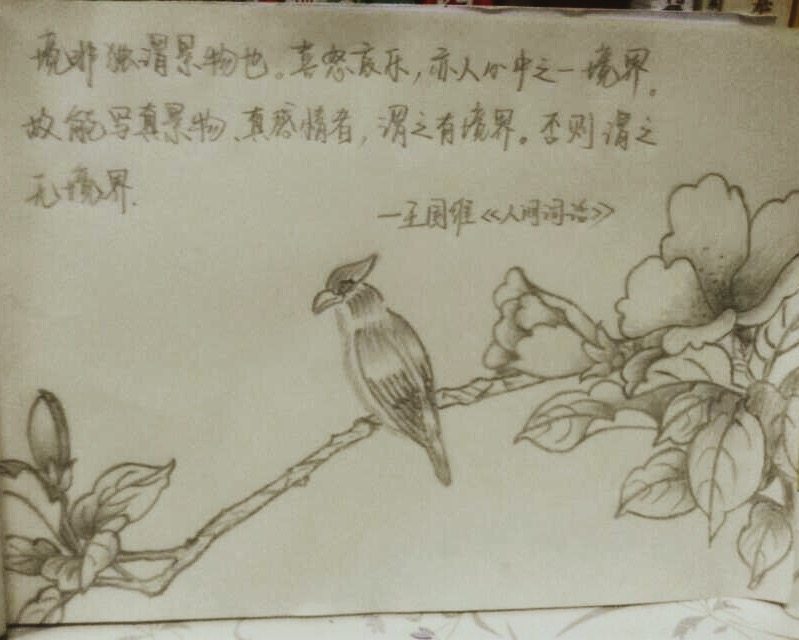 境非独谓景物也。喜怒哀乐，亦人心中之一境界。
故能写真景物、真感情者，谓之有境界。否则谓之
无境界.
—王国维《人间词话》